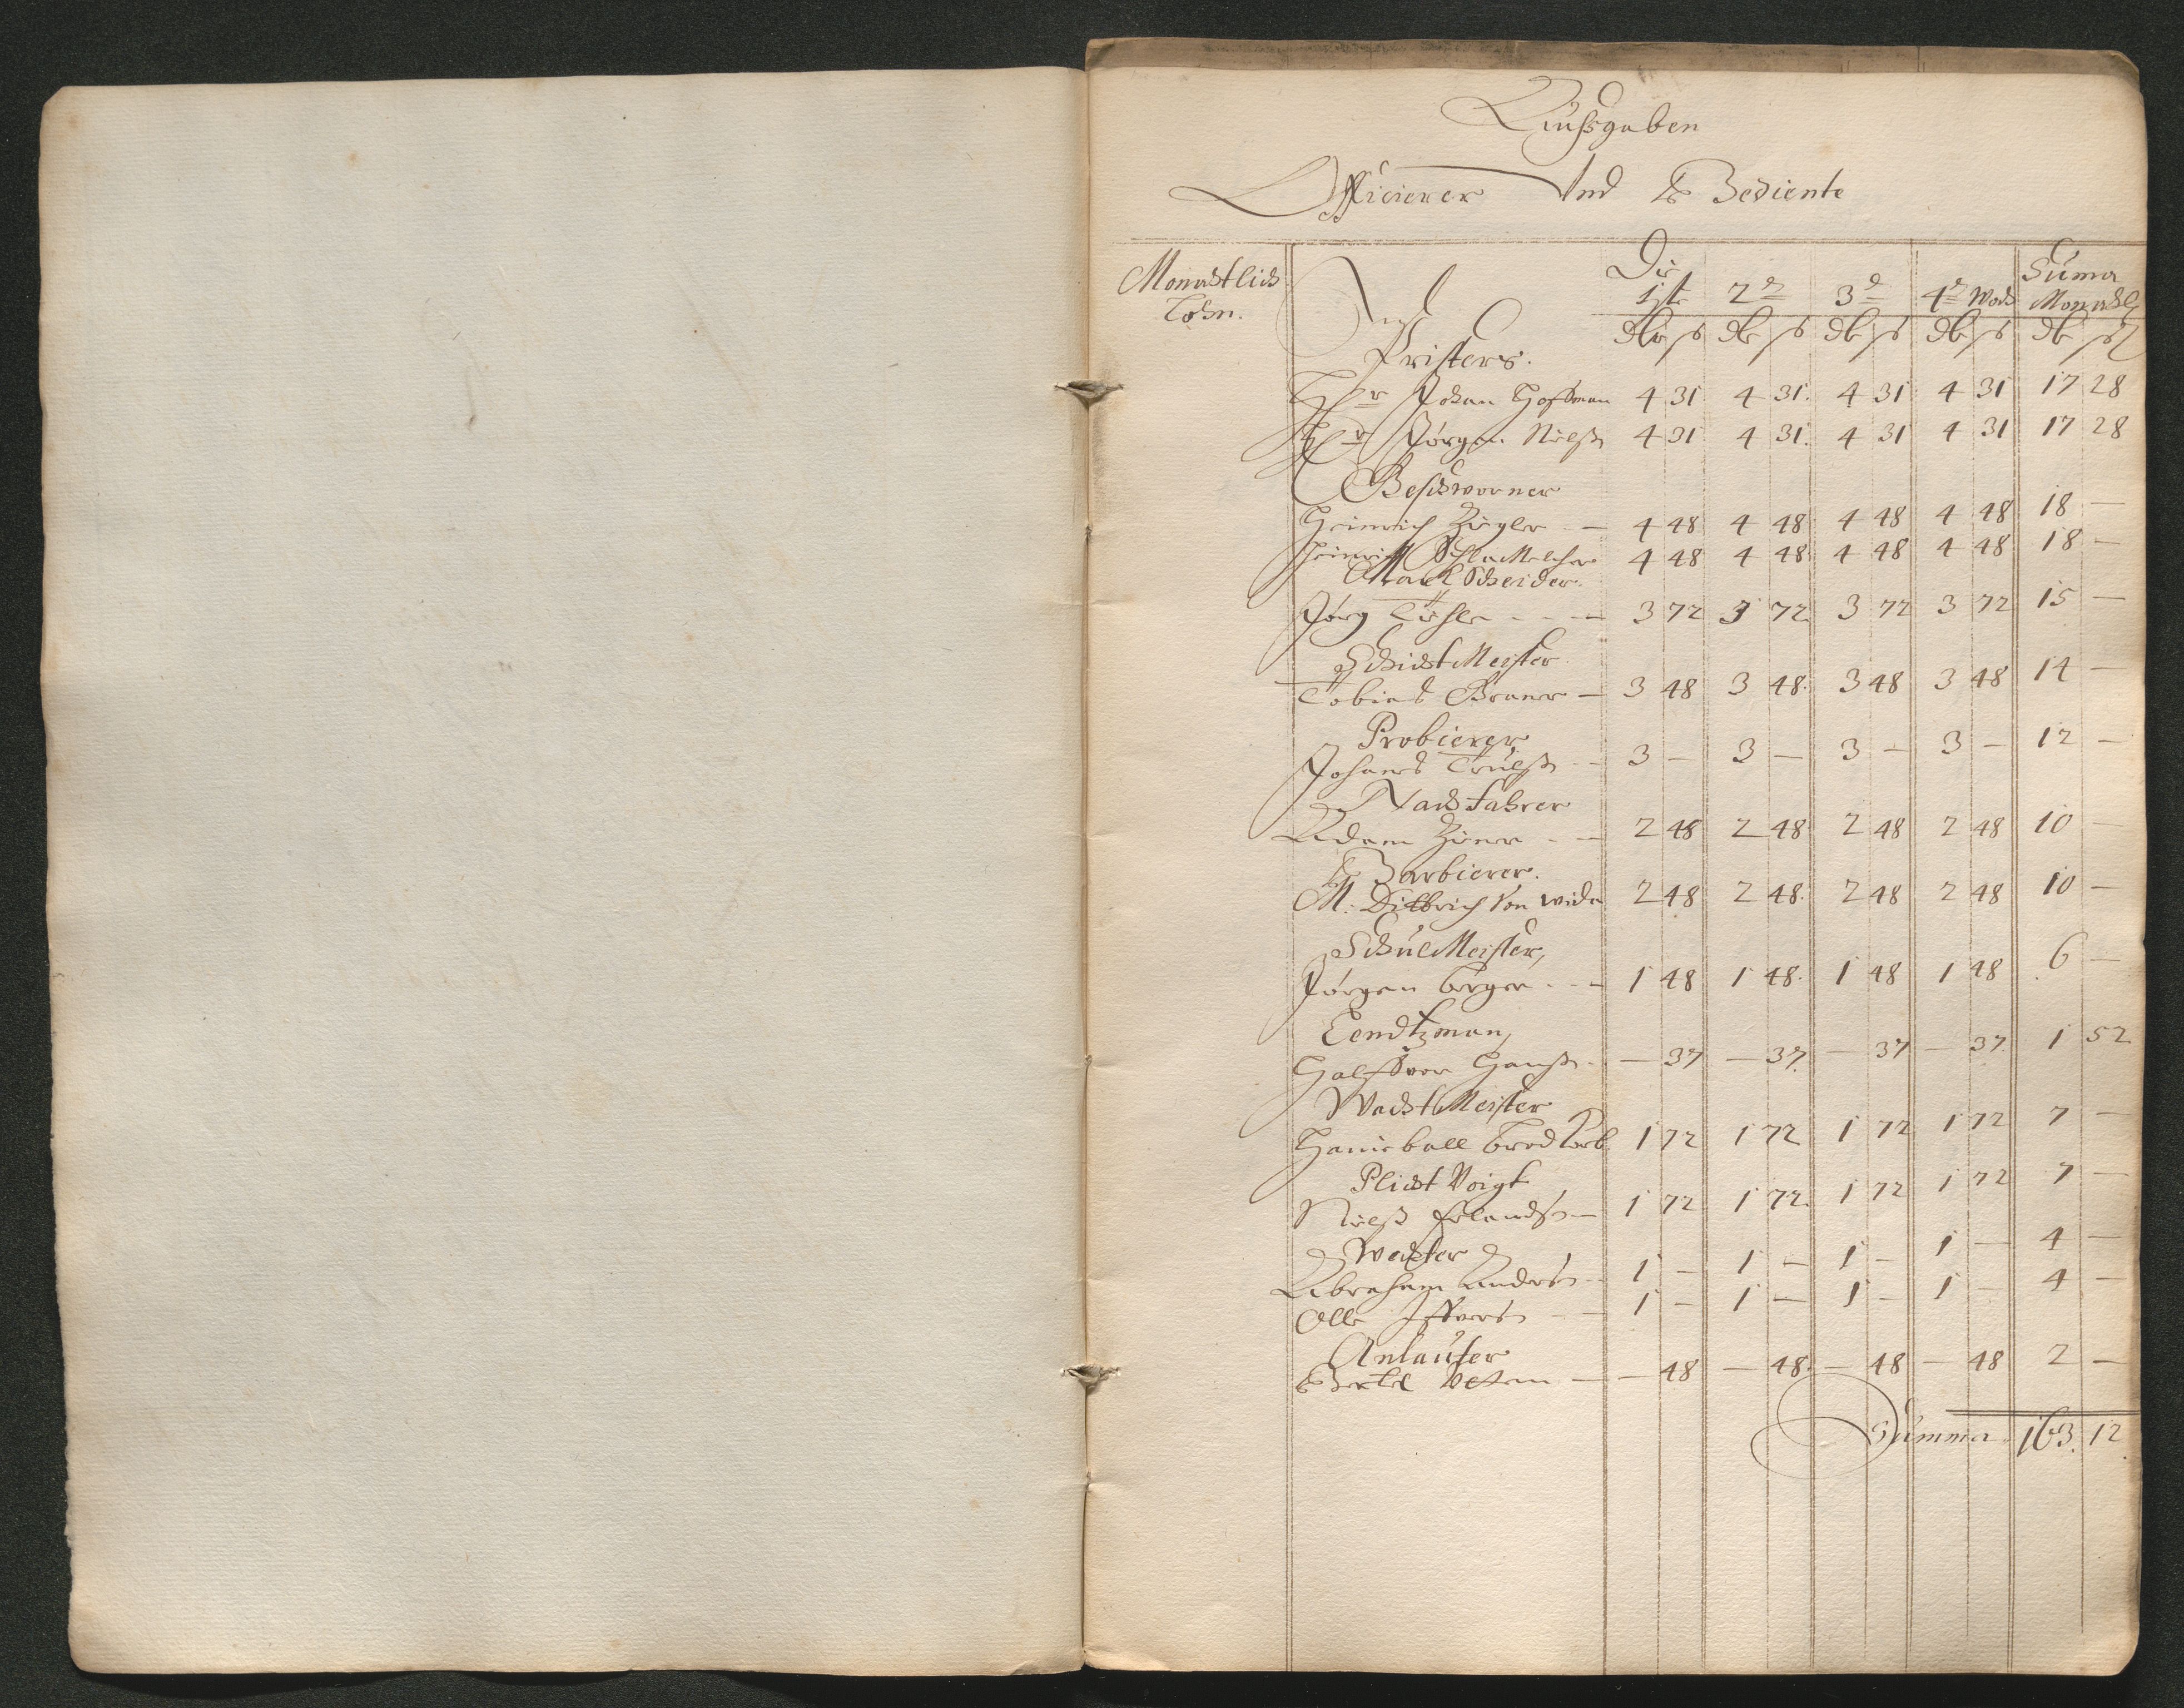 Aussgaben
Officierer Und Bediente
Monachtlich Die Suma
Lohn. 1ste 2e 3e 4e Woch Monachtl
dlr ß dlr ß dlr ß dlr ß dlr ß
Pristers.
Hr Johan Hoffman 4 31 4 31. 4 31 4 31 17 28
Hr Jörgen Nielß 4 31 4 31. 4 31 4 31 17 28
Beschworner
Heinrich Zigler — 4 48 4 48 4 48 4 48 18 —
Heinrich SchlaMelcher 4 48 4 48 4 48 4 48 18 —
Marckscheider.
Jörg — 3 72 3 72 3 72 3 72 15 —
SchichtMeister
Tobias Braner — 3 48 3 48. 3 48 3 48 14 —
Probierer,
Johans Truelß 3 — 3 — 3 — 3 — 12 —
Nachfahrer
Adam 2 48 2 48 2 48 2 48 10 —
Barbierer.
M: Dittrich Von Wida 2 48 2 48. 2 48 2 48 10 —
SchulMeister,
Jörgen Berger 1 48 1 48. 1 48 1 48 6 —
Lendtzman,
Halffvor Hanß — 37 — 37 — 37 — 37. 1 52
WachtMeister
Haniball Brodkorb 1 72 1 72 1 72 1 72 7 —
Plicht Voigt
Nielß Erlandß — 1 72 1 72. 1 72 1 72 7 —
Wechter
Abraham Anderß 1 — 1 — 1 — 1 — 4 —
Olle Iffverß 1 — 1 — 1 — 1 — 4 —
Anlaufer
Bertel — — 48 — 48. — 48 — 48 2 —
Summa 163. 12